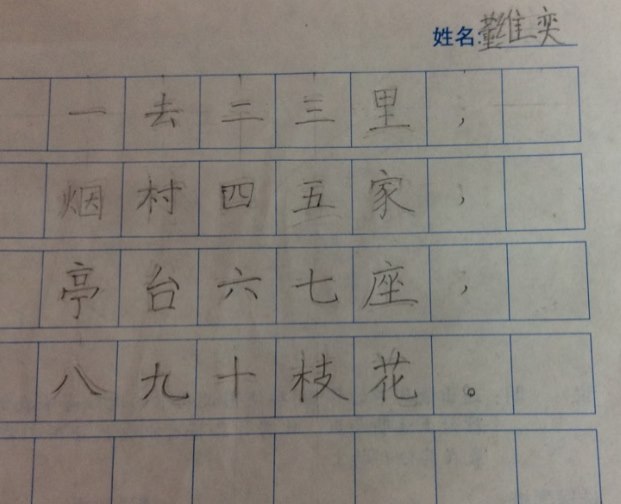 姓名:董维奕
一去二三里，
烟村四五家，
亭台六七座，
八九十枝花。